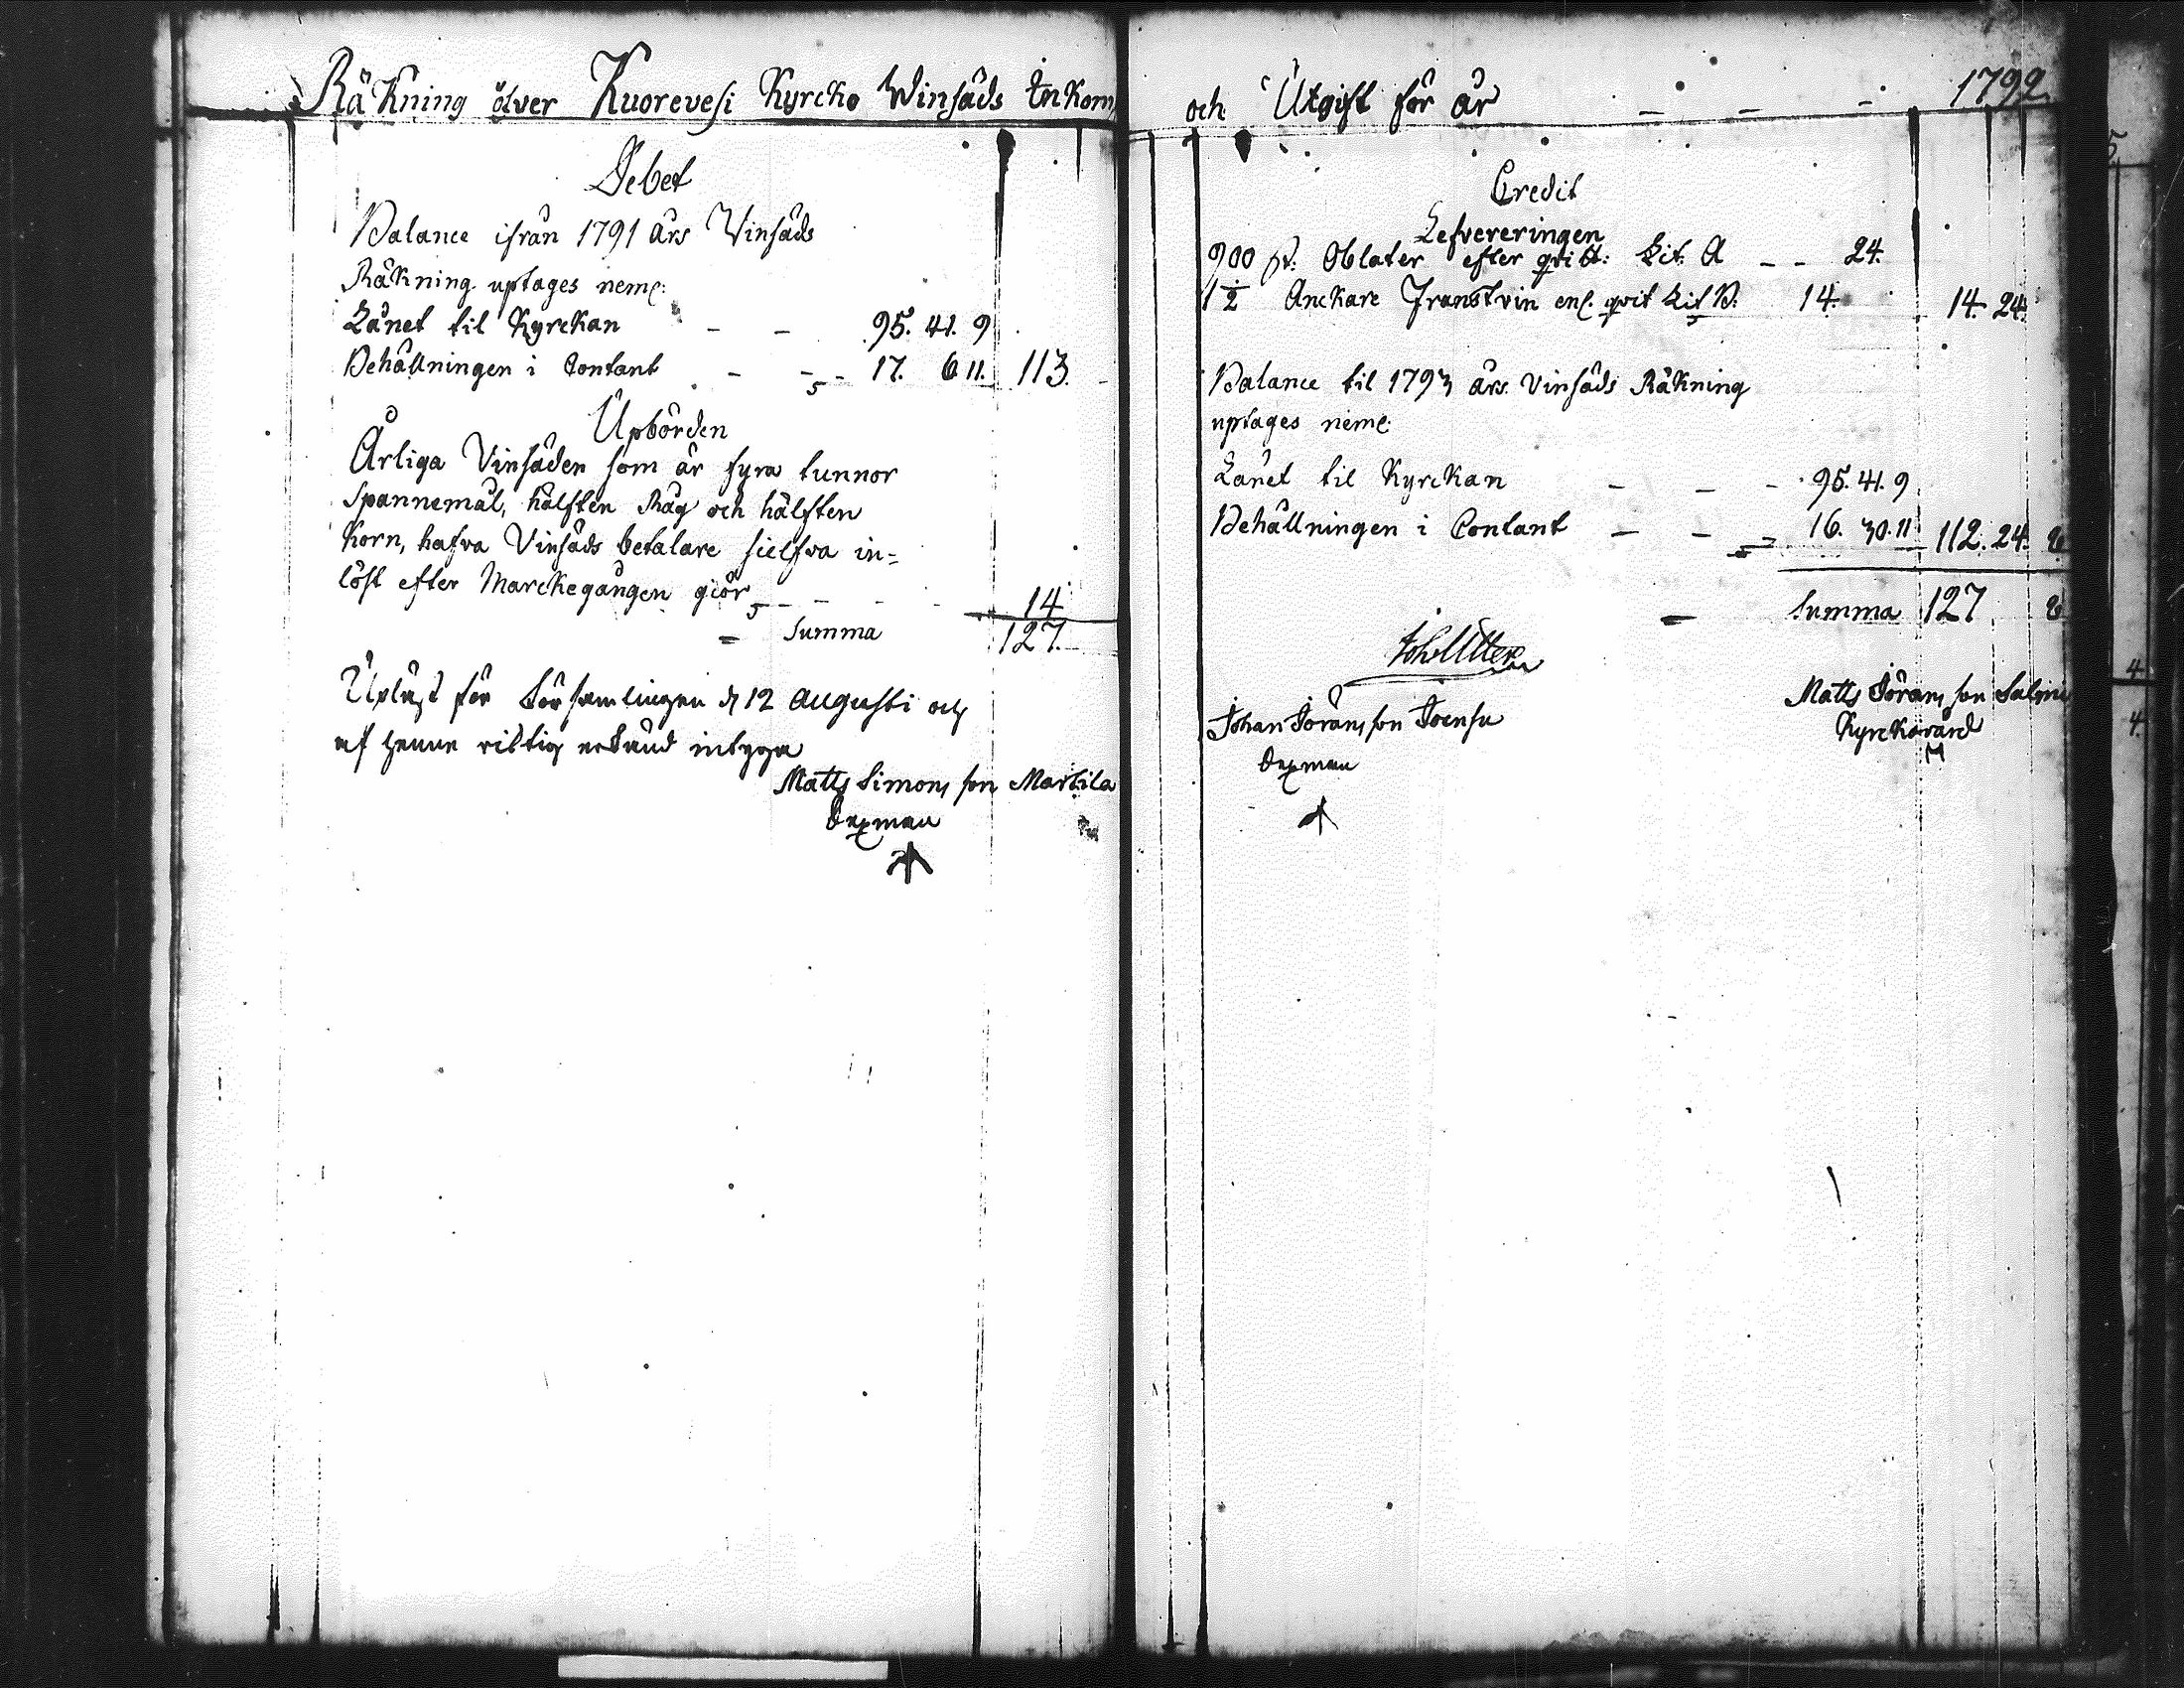 Räkning öfver Kuorevesi Kyrcko Winsäds Inkom
Debet
Balance ifrån 1791 års Vinsäds
Räkning uptages neml:
Lånet til Kyrckan - - 95. 41. 9
Behållningen i Contant - - - 17. 6 11. 113. -
Upbörden
Årliga Vinsäden som är fyra tunnor
Spannemål, hälften Råg och hälften
Korn, hafva Vinsäds betalare sielfva in-
löst efter Marckegången giör - - - - 14
Summa 127.
Upläst för Församlingen d 12 Augusti och
af henne riktig erkänd intyga
Matts Simons son Martila
Sexman
och Utgift för år - - - 1792
Credit
Lefvereringen
900 st: Oblater efter qvitt: Lit: A - - 24.
1 1/2 Anckare Franskt vin enl. qvit Lit B. 14. 14. 24.
Balance til 1793 års Vinsäds Räkning
uptages neml.
Lånet til Kyrckan - - - 95. 41. 9
Behållningen i Contant - - 16. 30. 11 112. 24. 8
Summa 127 8
Johan Görans son Joensu
Sexman
Matts Görans son Salmi
Kyrckovärd
5
4
4.